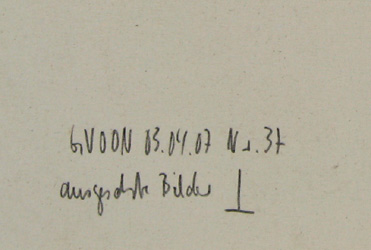 GVOON 03.04.07 Nr. 37
ausgesuchte Bilder I